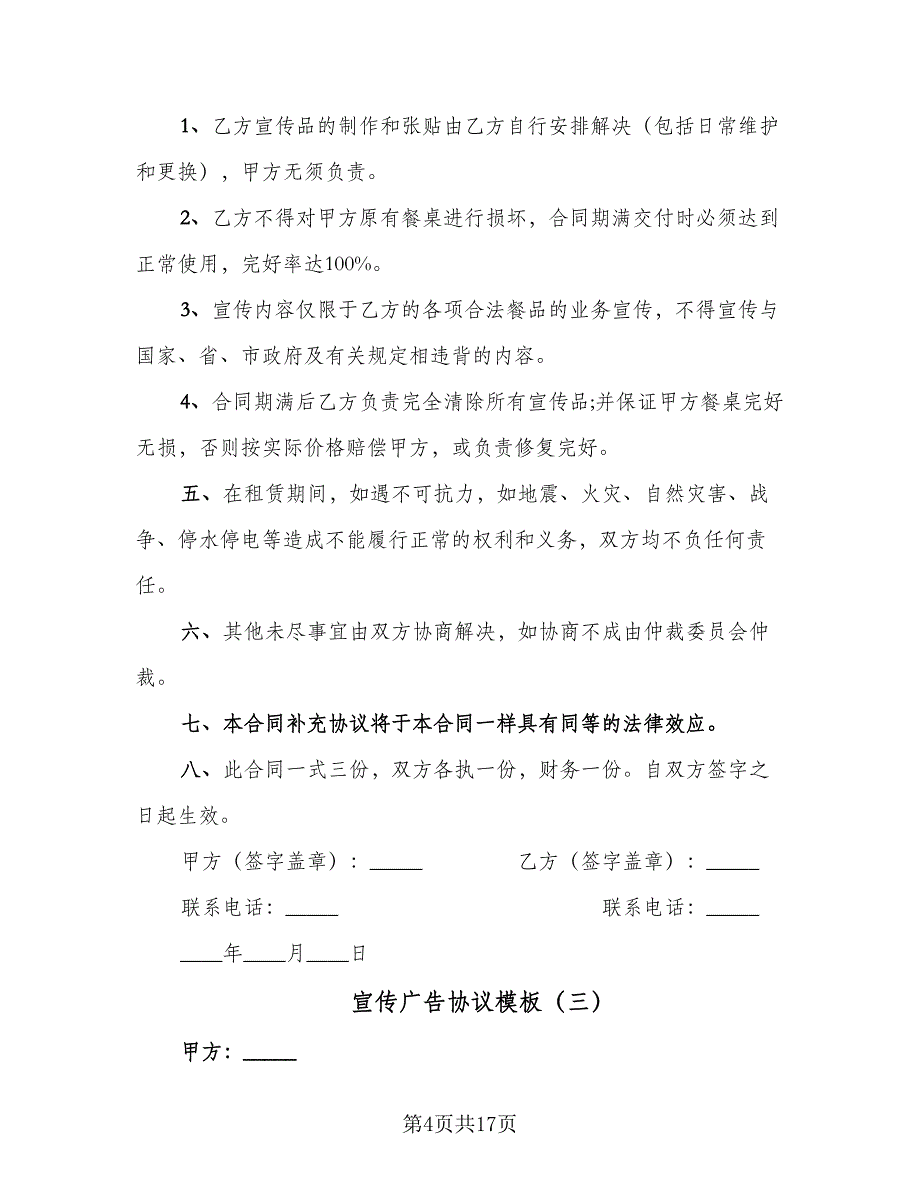 1、乙方宣传品的制作和张贴由乙方自行安排解决（包括日常维护
和更换），甲方无须负责。
2、乙方不得对甲方原有餐桌进行损坏，合同期满交付时必须达到
正常使用，完好率达100%。
3、宣传内容仅限于乙方的各项合法餐品的业务宣传，不得宣传与
国家、省、市政府及有关规定相违背的内容。
4、合同期满后乙方负责完全清除所有宣传品;并保证甲方餐桌完好
无损，否则按实际价格赔偿甲方，或负责修复完好。
五、在租赁期间，如遇不可抗力，如地震、火灾、自然灾害、战
争、停水停电等造成不能履行正常的权利和义务，双方均不负任何责
任。
六、其他未尽事宜由双方协商解决，如协商不成由仲裁委员会仲
裁。
七、本合同补充协议将于本合同一样具有同等的法律效应。
八、此合同一式三份，双方各执一份，财务一份。自双方签字之
日起生效。
甲方（签字盖章）：_____ 乙方（签字盖章）：_____
联系电话：_____ 联系电话：_____
____年____月____日
宣传广告协议模板（三）
甲方：_____
第4页共17页